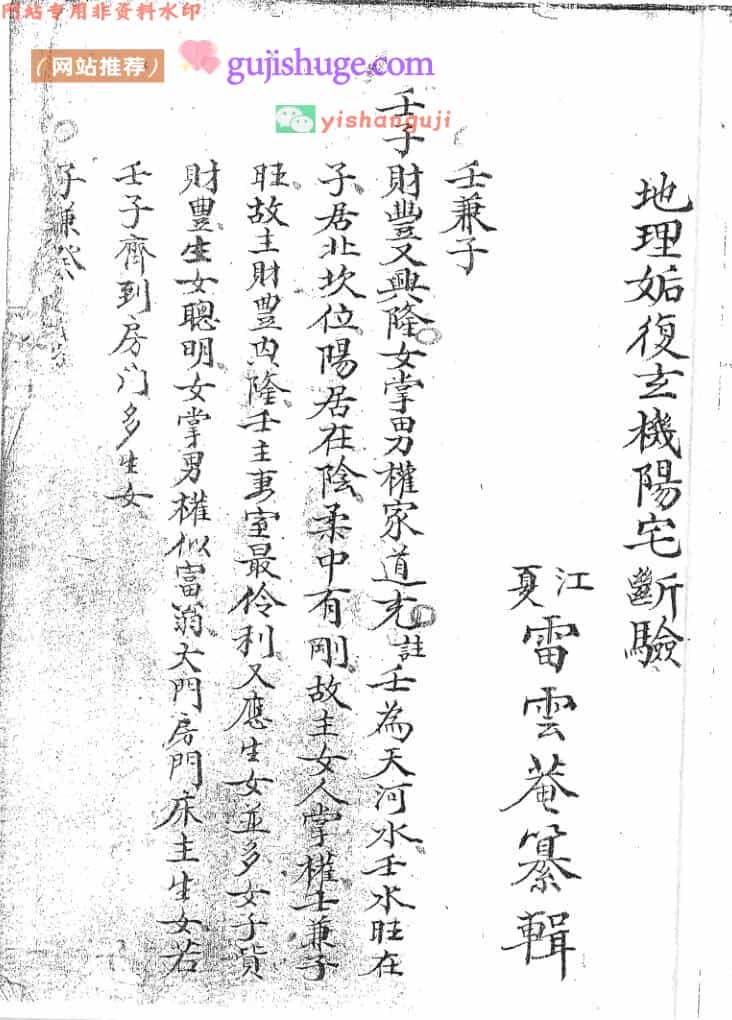 网站专用非资料水印
(网站推荐)
gujishuge.com
yishanguji
地理姤復玄機陽宅斷驗
江夏雷雲菴纂輯
壬兼子
壬子財豐又興隆女掌男權家道充註壬為天河水壬水旺在
子居北坎位陽居在陰柔中有剛故主女人掌權壬兼子
旺故主財豐內隆壬主妻室最伶利又應生女並多女子貨
財豐生女聰明女掌男權似富翁大門房門床主生女若
壬子齊到房门多生女
子兼癸